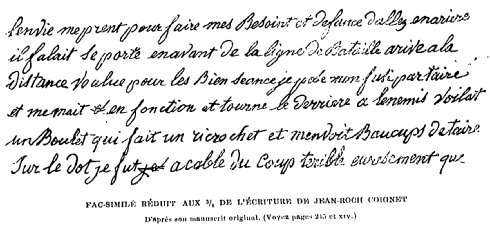 lenvie me prent pour faire mes Besoint et defance dallez enariere
il falait se porte enavant de la ligne de Bataille arive a la
distance voulue pour les Bien seance je pose mon fusi par taire
et me mait en fonction et tourne le derriere a lenemis voilat
un Boulet qui fait un ricrochet et menvoit Baucups de taire
sur le dot je fut acable du coup terible eurosement que
FAC-SIMILÉ RÉDUIT AUX 3/4 DE L'ÉCRITURE DE JEAN-ROCH COIGNET
D'après son manuscrit original. (Voyez pages 215 et XIV.)